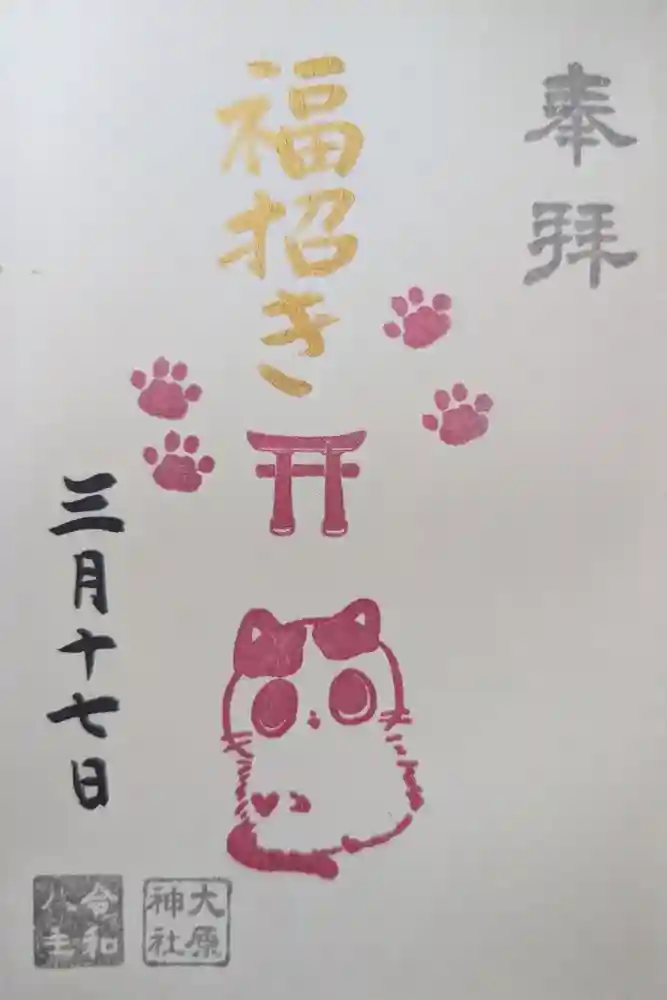 奉拝
福招き
三月十七日
大原
神社
令和
八年